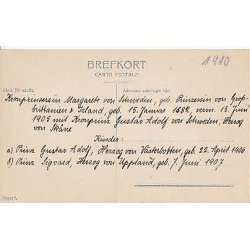 1910
BREFKORT
CARTE POSTALE
Kronprinzessin Margareta von Schweden, geb. Prinzessin von Groß-
brittanien & Irland, geb. 15. Januar 1882, verm. 15. Juni
1905 mit Kronprinz Gustav Adolf von Schweden, Herzog
von Skåne
Kinder:
a) Prinz Gustav Adolf, Herzog von Västerbotten, geb. 22. April 1906
b) Prinz Sigvard, Herzog von Uppland, geb. 7. Juni 1907